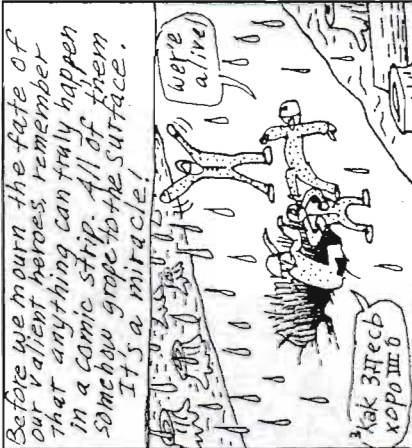 Before we mourn the fate of
our valient heroes, remember
that anything can truly happen
in a comic strip. All of them
somehow grope to the surface.
It's a miracle!
we're
alive!
³Как ЗДТесь
хоро Ш б